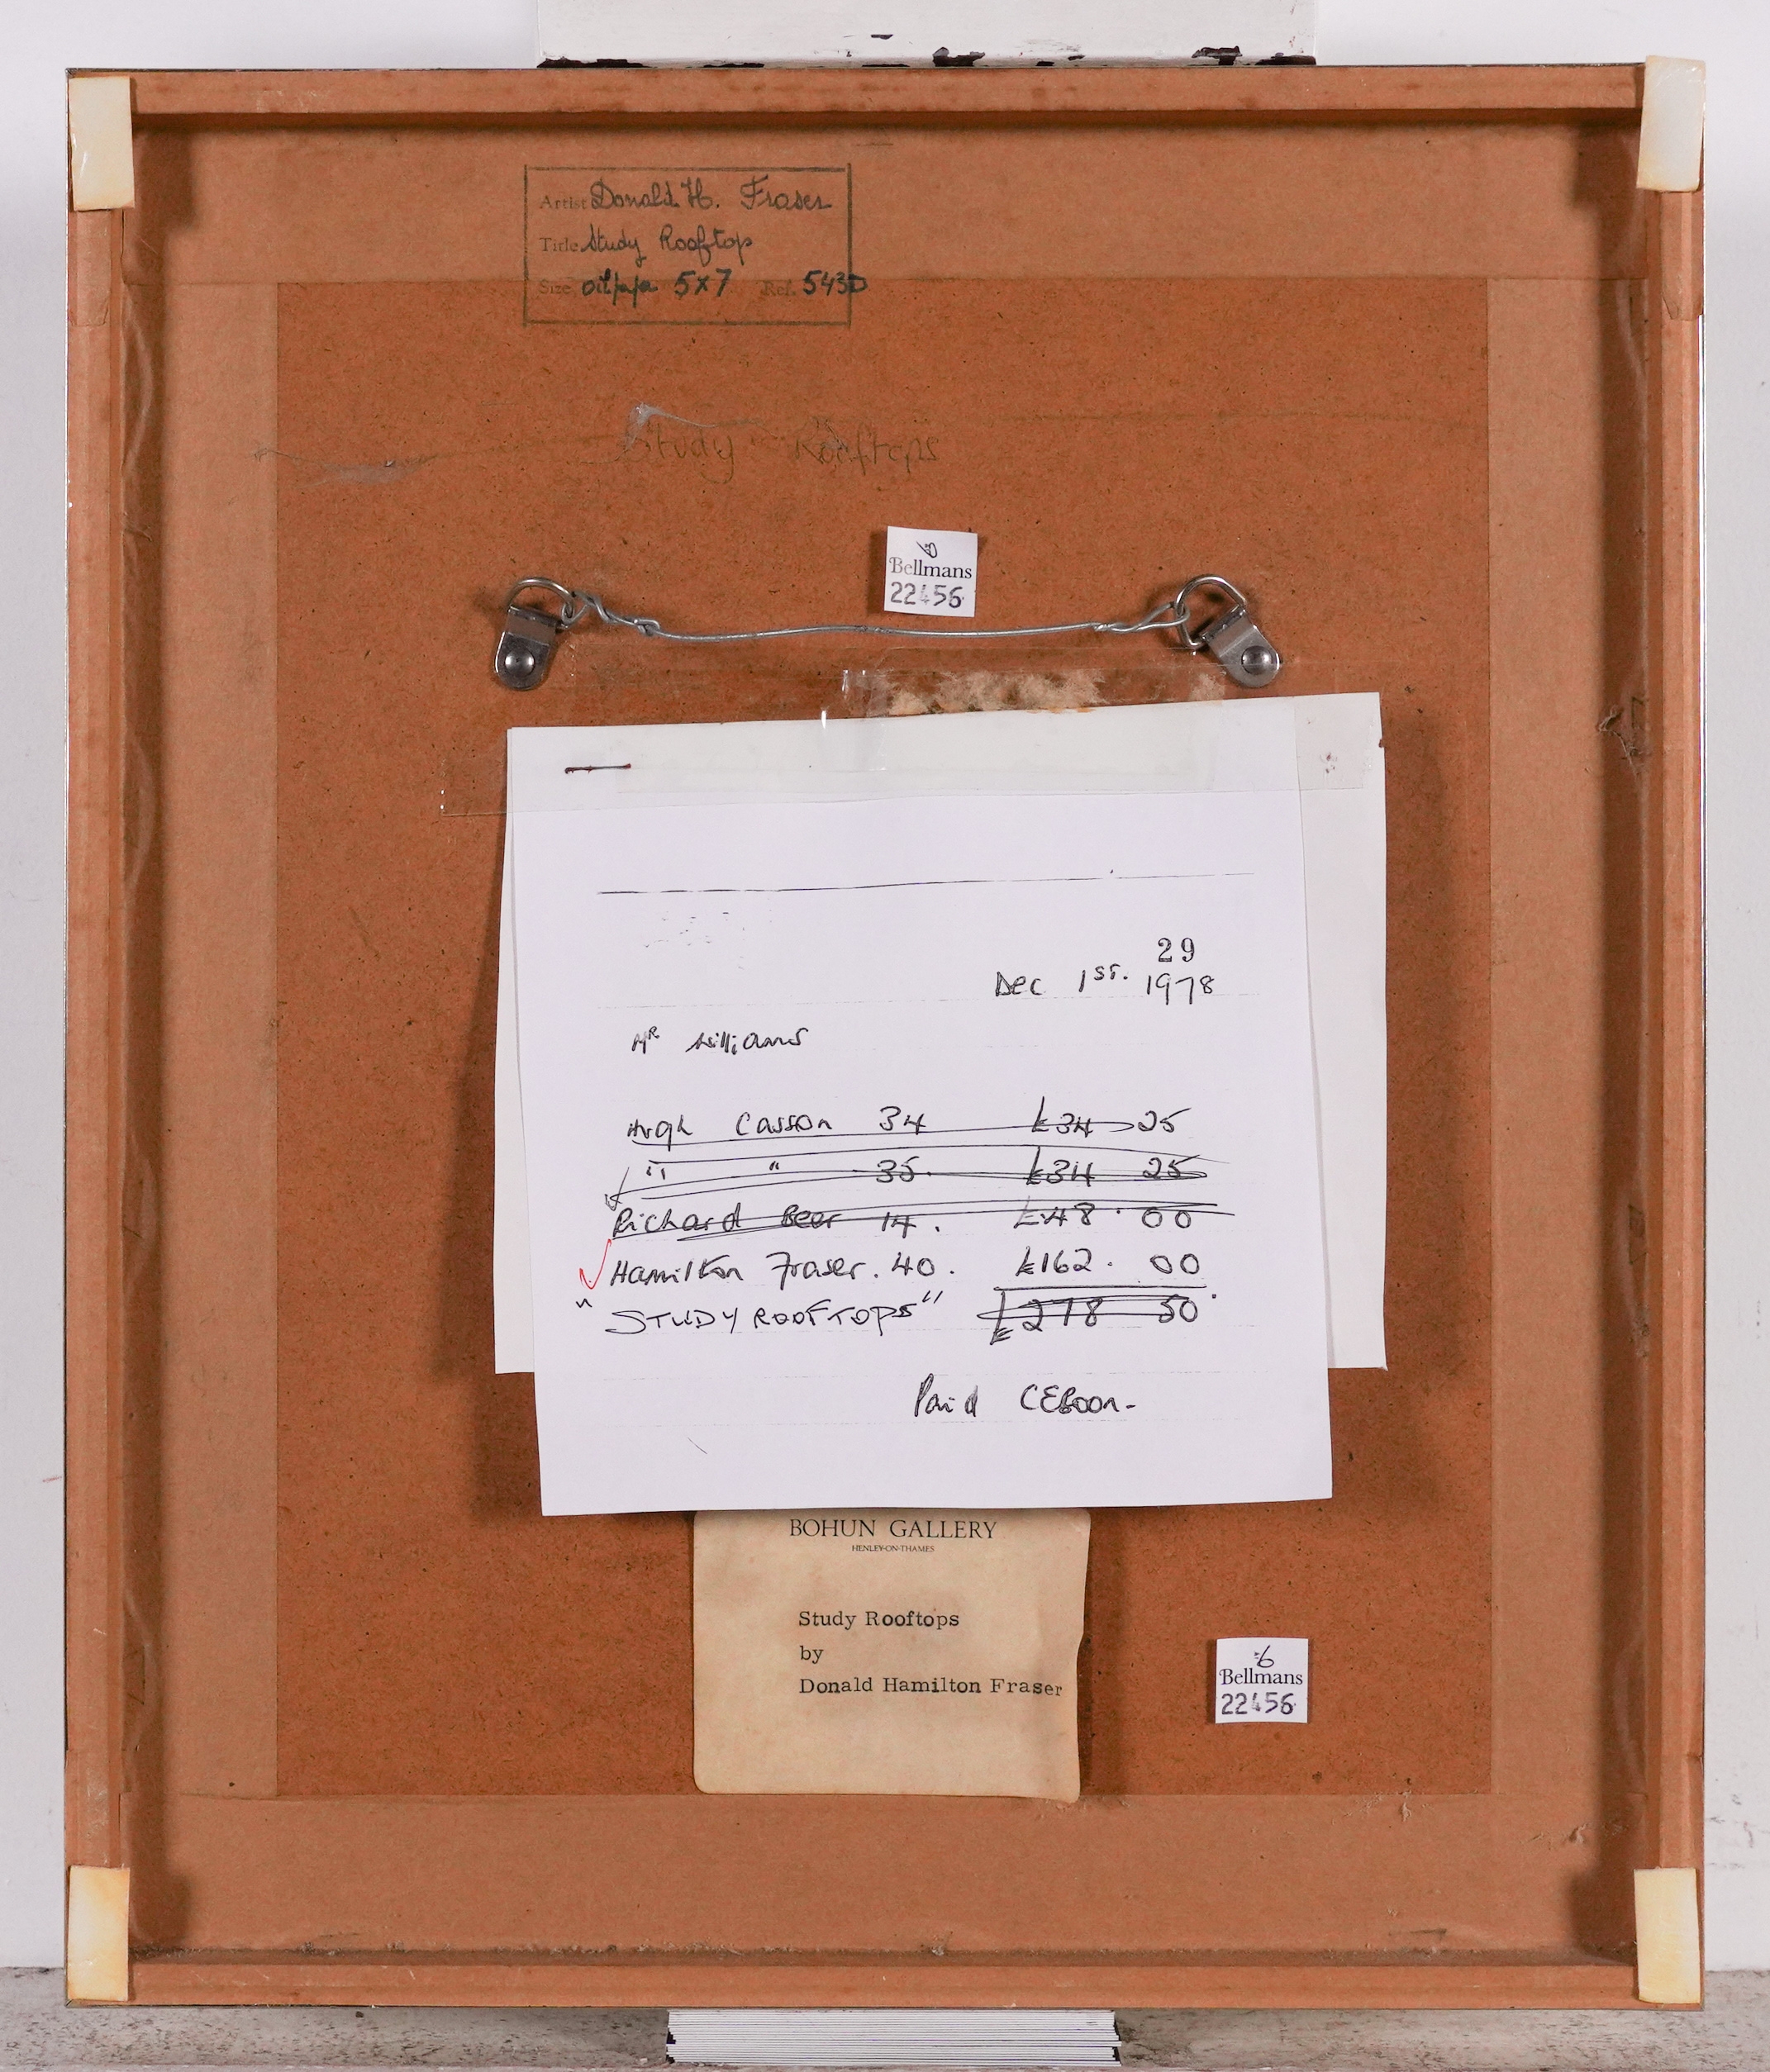 Artist Donald H. Fraser
Title Study Rooftop
Size 5x7 Ref. 543D
Study Rooftops
6
Bellmans
22456
29
Dec 1ST. 1978
MR Williams
Hugh Casson 34 £34 25
" " 35. £34 25
Richard Beer 14. £48. 00
Hamilton Fraser. 40. £162. 00
"STUDY ROOFTOPS" £278 50
Paid
BOHUN GALLERY
HENLEY-ON-THAMES
Study Rooftops
by
Donald Hamilton Fraser
6
Bellmans
22456